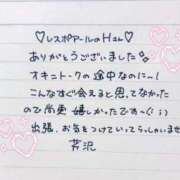 ♡レスポワールのHさん♡
ありがとうございました
オキニトークの途中なのにー!
こんなすぐ会えると思ってなかった
ので尚更 嬉しかったですー(;;)
出張、お気をつけていってらっしゃいませ
芹沢